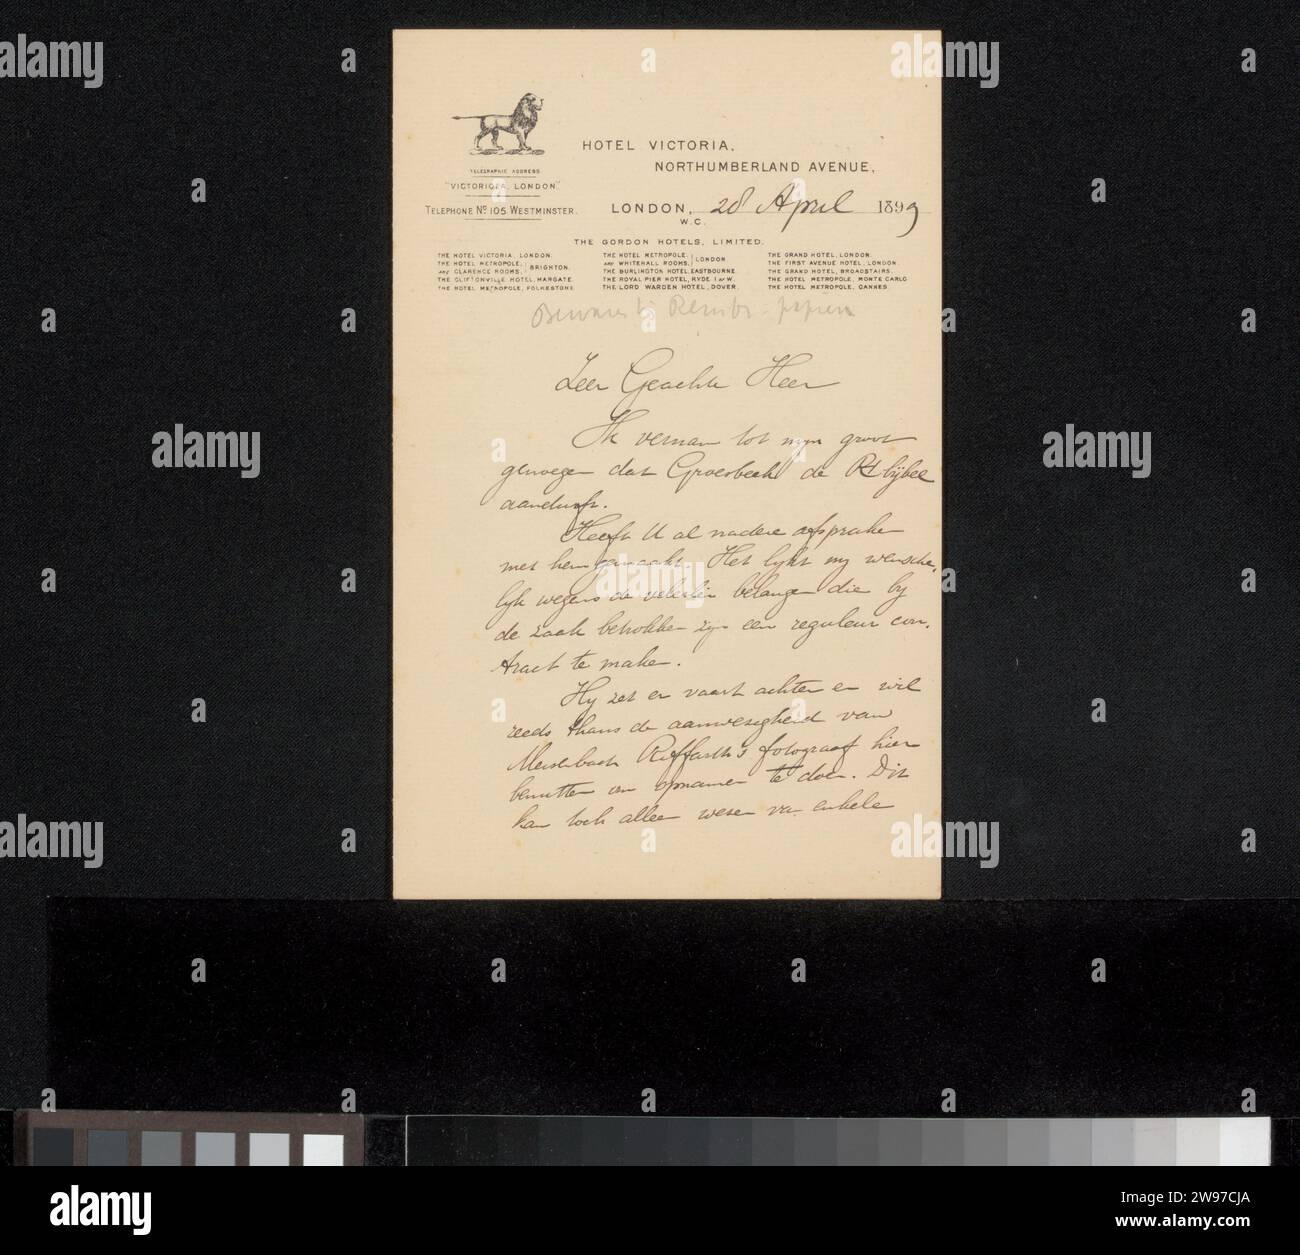 TELEGRAPHIC ADDRESS
"VICTORIOLA, LONDON."
TELEPHONE No 105 WESTMINSTER.
HOTEL VICTORIA,
NORTHUMBERLAND AVENUE,
LONDON, 28 April 1899
W.C.
THE GORDON HOTELS, LIMITED.
THE HOTEL VICTORIA, LONDON.
THE HOTEL METROPOLE,
AND CLARENCE ROOMS, BRIGHTON.
THE CLIFTONVILLE HOTEL, MARGATE.
THE HOTEL METROPOLE, FOLKESTONE.
THE HOTEL METROPOLE,
AND WHITEHALL ROOMS, LONDON
THE BURLINGTON HOTEL, EASTBOURNE.
THE ROYAL PIER HOTEL, RYDE I OF W.
THE LORD WARDEN HOTEL, DOVER.
THE GRAND HOTEL, LONDON.
THE FIRST AVENUE HOTEL, LONDON.
THE GRAND HOTEL, BROADSTAIRS.
THE HOTEL METROPOLE, MONTE CARLO
THE HOTEL METROPOLE, CANNES.
Rembr. papieren
Zeer Geachte Heer
Ik vernam tot myn groot
genoegen dat Groesbeek de bybel
aandurft.
Heeft U al nadere afspraken
met hem gemaakt. Het lykt my wensche-
lyk wegens de belangen die by
de zaak betrokken zyn een regulier con-
tract te maken.
Hy zet er vaart achter en wil
reeds thans de aanwezigheid van
Meisenbach Riffarth's fotograaf hier
benutten om opnamen te doen. Dit
kan toch alleen wezen van enkele
alamy
a
alamy
Image ID: 2W97CJA
www.alamy.com